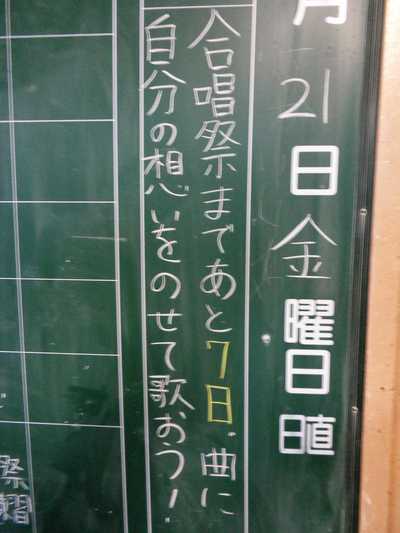 月21日金曜日 日直
合唱祭まであと7日。曲に
自分の想いをのせて歌おう!
祭
習